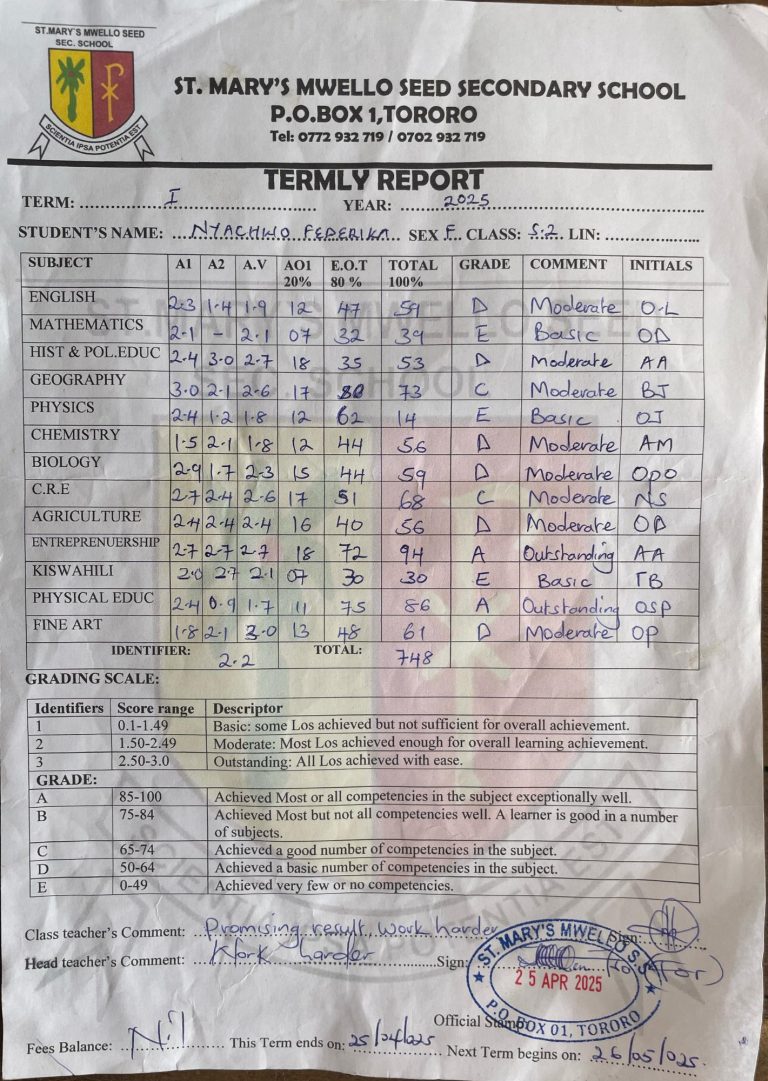 ST.MARY'S MWELLO SEED
SEC. SCHOOL
SCIENTIA IPSA POTENTIA EST
ST. MARY'S MWELLO SEED SECONDARY SCHOOL
P.O.BOX 1,TORORO
Tel: 0772 932 719 / 0702 932 719
TERMLY REPORT
TERM: I YEAR: 2025
STUDENT'S NAME: NYACHWO FEDERIKA SEX F CLASS: S.2 LIN:
SUBJECT A1 A2 A.V AO1 20% E.O.T 80 % TOTAL 100% GRADE COMMENT INITIALS
ENGLISH 2.3 1.4 1.9 12 47 59 D Moderate O.L
MATHEMATICS 2.1 - 2.1 07 32 39 E Basic OD
HIST & POL.EDUC 2.4 3.0 2.7 18 35 53 D Moderate AA
GEOGRAPHY 3.0 2.1 2.6 17 73 C Moderate BJ
PHYSICS 2.4 1.2 1.8 12 62 14 E Basic OJ
CHEMISTRY 1.5 2.1 1.8 12 44 56 D Moderate AM
BIOLOGY 2.9 1.7 2.3 15 44 59 D Moderate Opo
C.R.E 2.7 2.4 2.6 17 51 68 C Moderate NS
AGRICULTURE 2.4 2.4 2.4 16 40 56 D Moderate OD
ENTREPRENUERSHIP 2.7 2.7 2.7 18 72 94 A Outstanding AA
KISWAHILI 2.0 2.7 2.1 07 30 30 E Basic TB
PHYSICAL EDUC 2.4 0.9 1.7 11 75 86 A Outstanding OSP
FINE ART 1.8 2.1 2.0 13 48 61 D Moderate OP
IDENTIFIER: 2.2 TOTAL: 748
GRADING SCALE:
Identifiers Score range Descriptor
1 0.1-1.49 Basic: some Los achieved but not sufficient for overall achievement.
2 1.50-2.49 Moderate: Most Los achieved enough for overall learning achievement.
3 2.50-3.0 Outstanding: All Los achieved with ease.
GRADE:
A 85-100 Achieved Most or all competencies in the subject exceptionally well.
B 75-84 Achieved Most but not all competencies well. A learner is good in a number
of subjects.
C 65-74 Achieved a good number of competencies in the subject.
D 50-64 Achieved a basic number of competencies in the subject.
E 0-49 Achieved very few or no competencies.
Class teacher's Comment: Promising result, work harder Sign:
Head teacher's Comment: Work harder Sign:
ST. MARY'S MWELLO S.S
25 APR 2025
P.O. BOX 01, TORORO
Official Stamp
Fees Balance: Nil This Term ends on: 25/04/025 Next Term begins on: 26/05/025